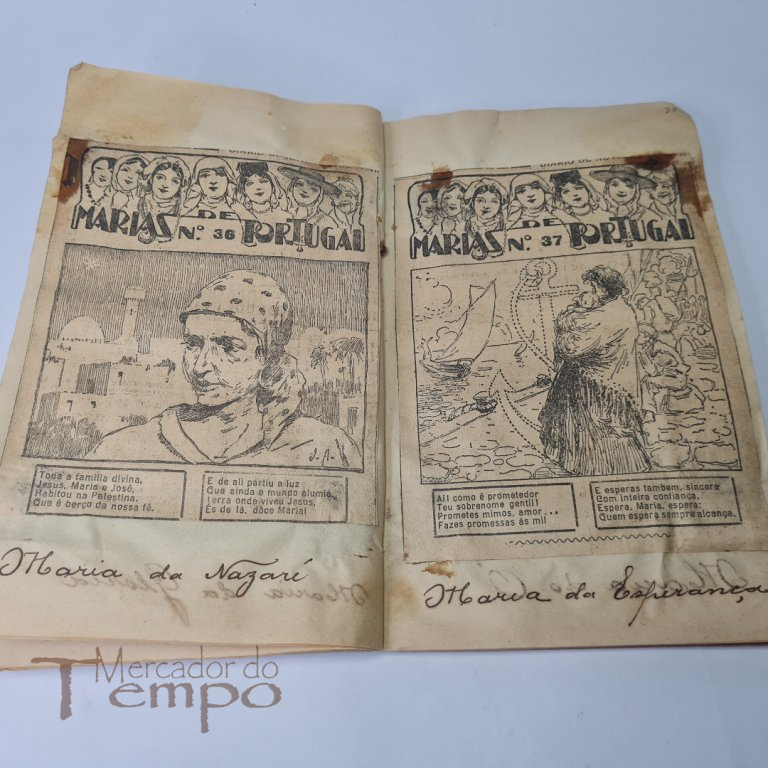 MARIAS DE PORTUGAL
Nº. 36
J. A-
Toda a familia divina,
Jesus, Maria e José,
Habitou na Palestina,
Que é berço da nossa fé.
E de ali partiu a luz
Que ainda o mundo alumia,
Terra onde viveu Jesus,
És de lá, dôce Maria!
Maria da Nazaré
DIARIO DE
MARIAS DE PORTUGAL
Nº. 37
Ai! como é prometedor
Teu sobrenome gentil!
Prometes mimos, amor...
Fazes promessas ás mil
E esperas tambem, sincera
Com inteira confiança.
Espera, Maria, espera:
Quem espera sempre alcança.
Maria da Esperança
Mercador do
Tempo